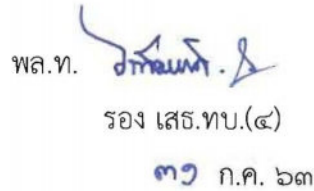 พล.ท.
รอง เสธ.ทบ.(๔)
๓๑ ก.ค. ๖๓